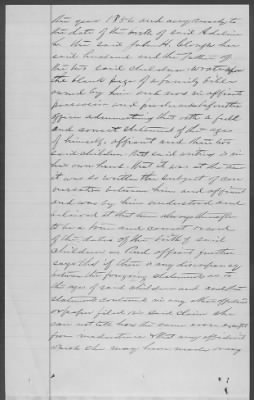 the year 1856 and very nearly to
the date of the birth of said Adeline
he the said John H. her
said husband and the father of
the two said children wrote upon
the blank page of a family bible
owned by him and now in affiants
possession and produced before the
officer administering this oath a full
and correct statement of the ages
of himself, affiant and their two
said children that said entry is in
his own hand, that it was at the time
it was so written the subject of con
versation between him and affiant
and was by him understood and
believed at that time always thereafter
to be a true and correct record
of the dates of the birth of said
children and affiant further
says that if there is any discrepancy
between the foregoing statement as to
the ages of said children and and the
statement contained in any other affidavit
or paper filed in said claim she
can not tell how the same arose except
from inadvertence that any affidavit
which she may have made may